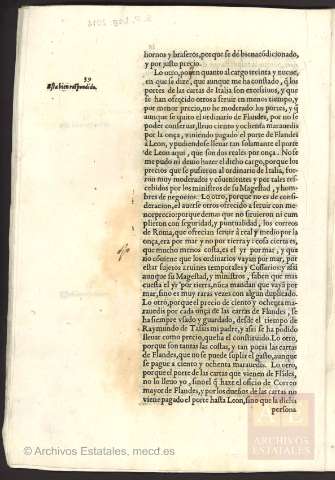 hornos y braseros, porque se dé buena cõdicionado,
y por justo precio.
39
està bien respondido.
Lo otro, por en quanto al cargo treinta y nueue,
en que se dize, que aunque me ha constado, q̃ los
portes de las cartas de Italia son excesiuos, y que
se han ofrecido otros a seruir en menos tiempo, y
por menor precio, no he moderado los portes, y q̃
aunque se quito el ordinario de Flandes, por no se
poder conseruar, lleuo ciento y ochenta marauedis
por la onça, viniendo pagado el porte de Flandes
à Leon, y pudiendose lleuar tan solamente el porte
de Leon aqui, que son dos reales por onça. No se
me pudo ni deuio hazer el dicho cargo, porque los
precios que se pusieron al ordinario de Italia, fue-
ron muy moderados y cõuenientes, y por tales res-
cebidos por los ministros de su Magestad, y hom-
bres de negocios. Lo otro, porque no es de consi-
deracion, el auerse otros ofrecido a seruir con me-
nor precio: porque demas que no siruieron ni cum
plieron con seguridad, y puntualidad, los correos
de Roma, que ofrecian seruir à real y medio por la
onça, era por mar y no por tierra, y cosa cierta es,
que mucho menos costa, es el yr por mar, y que
no cõuiene que los ordinarios vayan por mar, por
estar sujetos a ruines temporales y Cossarios, y assi
aunque su Magestad, y ministros, saben que mas
cuesta el yr por tierra, nũca mandan que vayã por
mar, sino es muy raras vezes con algun duplicado.
Lo otro, porque el precio de ciento y ochẽta mara-
uedis por cada onça de las cartas de Flandes, se
ha siempre vsado y guardado, desde el tiempo de
Raymundo de Tassis mi padre, y assi se ha podido
lleuar como precio, que lo ha constituido. Lo otro,
porque son tantas las costas, y tan pocas las cartas
de Flandes, que no se puede suplir el gasto, aunque
se pague a ciento y ochenta marauedis. Lo otro,
porque el porte de las cartas que vienen de Flãdes,
no lo lleuo yo, sino el q̃ haze el oficio de Correo
mayor de Flandes, y por los dueños de las cartas no
viene pagado el porte hasta Leon, sino que la dicha
persona
© Archivos Estatales, mecd.es
ARCHIVOS
ESTATALES